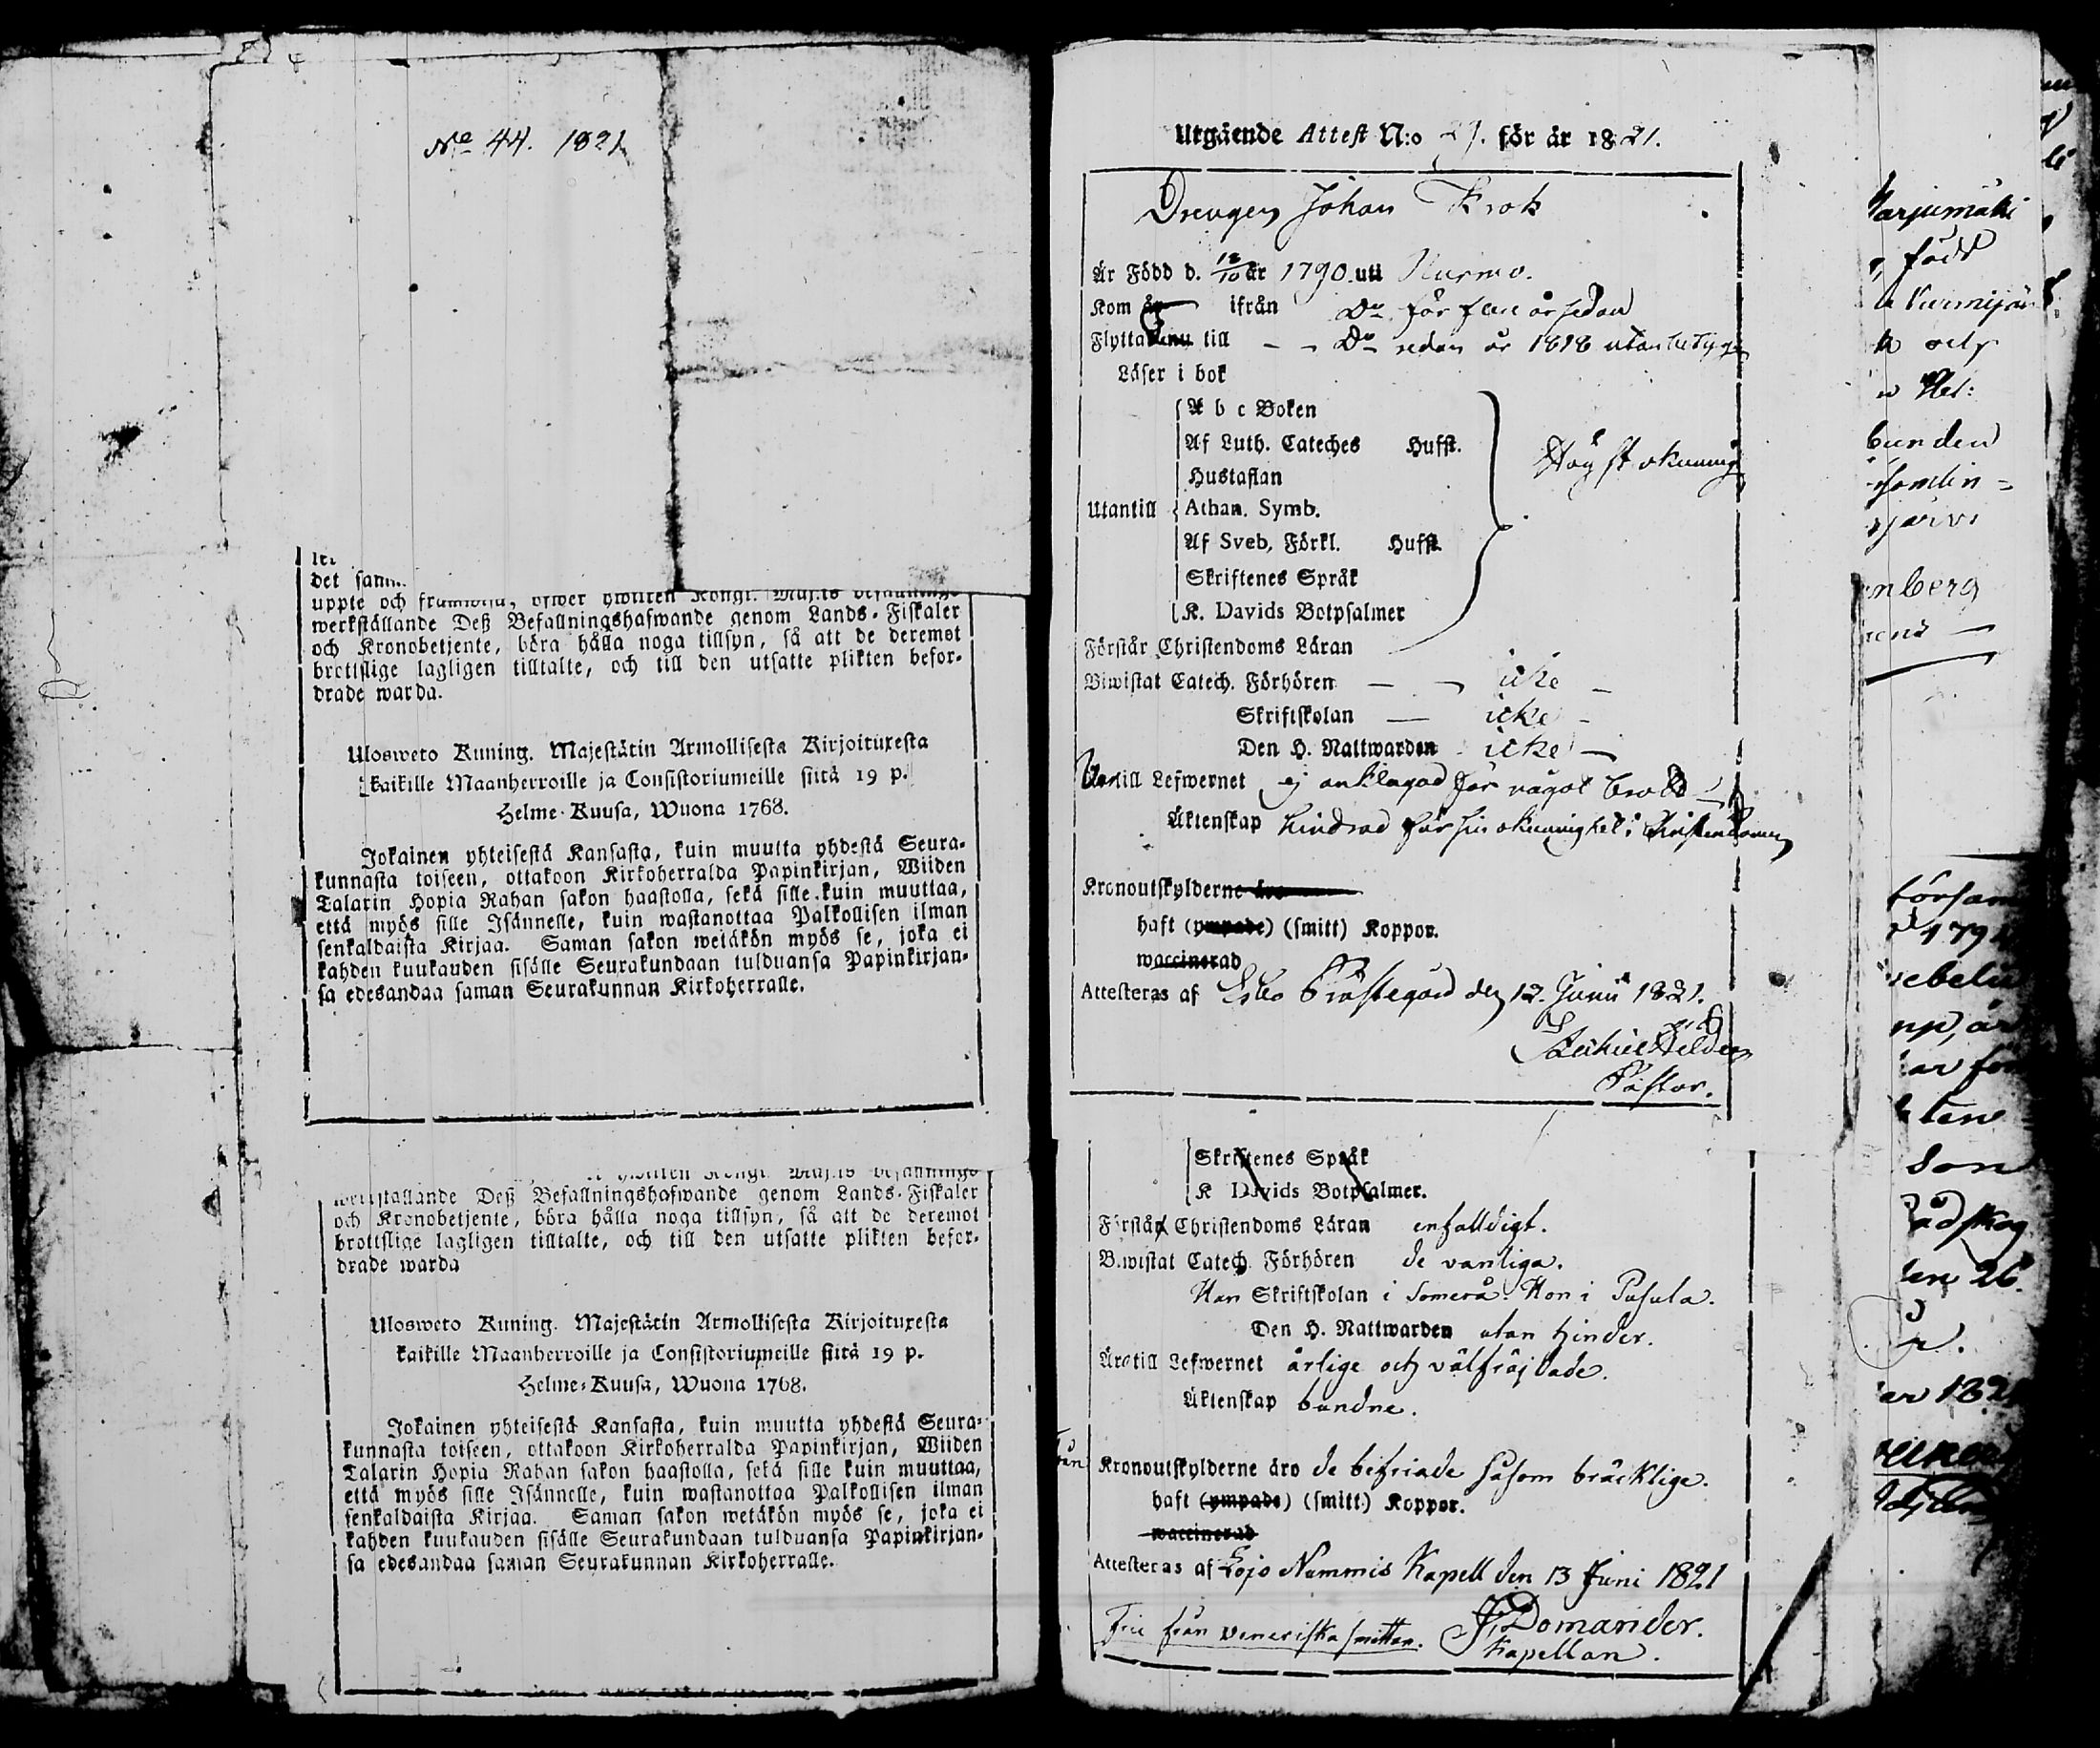 No 44. 1821
det samm
uppte och framwisa, öfwer hwilken Kongl. Maj:ts Befallnings
werkställande Deß Befallningshafwande genom Lands-Fiskaler
och Kronobetjente, böra hålla noga tillsyn, så att de deremot
brottslige lagligen tilltalte, och till den utsatte plikten befor-
drade warda.
Ulosweto Kuning. Majestätin Armollisesta Kirjoituxesta
kaikille Maanherroille ja Consistoriumeille siitä 19 p.
Helme-Kuusa, Wuona 1768.
Jokainen yhteisestä Kansasta, kuin muutta yhdestä Seura-
kunnasta toiseen, ottakoon Kirkoherralda Papinkirjan, Wiiden
Talarin Hopia Rahan sakon haastolla, sekä sille kuin muuttaa,
että myös sille Isännelle, kuin wastanottaa Palkollisen ilman
senkaldaista Kirjaa. Saman sakon wetäkön myös se, joka ei
kahden kuukauden sisälle Seurakundaan tulduansa Papinkirjan-
sa edesandaa saman Seurakunnan Kirkoherralle.
hwilken Kongl. Maj:ts Befallnings
werkställande Deß Befallningshafwande genom Lands-Fiskaler
och Kronobetjente, böra hålla noga tillsyn, så att de deremot
brottslige lagligen tilltalte, och till den utsatte plikten befor-
drade warda
Ulosweto Kuning. Majestätin Armollisesta Kirjoituxesta
kaikille Maanherroille ja Consistoriumeille siitä 19 p.
Helme-Kuusa, Wuona 1768.
Jokainen yhteisestä Kansasta, kuin muutta yhdestä Seura-
kunnasta toiseen, ottakoon Kirkoherralda Papinkirjan, Wiiden
Talarin Hopia Rahan sakon haastolla, sekä sille kuin muuttaa,
että myös sille Isännelle, kuin wastanottaa Palkollisen ilman
senkaldaista Kirjaa. Saman sakon wetäkön myös se, joka ei
kahden kuukauden sisälle Seurakundaan tulduansa Papinkirjan-
sa edesandaa saman Seurakunnan Kirkoherralle.
Utgående Attest N:o 29. för år 1821.
Drengen Johan Krok
Är Född d. 18/10 år 1790 uti Nurmo.
Kom år ifrån Do för fem år sedan
Flyttar nu till Do redan år 1818 utan betyg
Läser i bok
A b c Boken
Af Luth. Cateches Hufst.
Hustaflan
Högst okunnig
Utantill Athan. Symb.
Af Sveb. Förkl. Hufst.
Skriftenes Språk
K. Davids Botpsalmer
Förstår Christendoms Läran
Biwistat Catech. Förhören icke
Skriftskolan icke
Den H. Nattwarden icke
Är till Lefwernet ej anklagad för något brott
Äktenskap hindrad för sin okunnighet i Christendomen
Kronoutskylderne äro
haft (ympade) (smitt) Koppor.
waccinerad
Attesteras af Esbo Prästegård den 12. Junii 1821.
Pastor.
Skriftenes Språk
K Davids Botpsalmer.
Förstår Christendoms Läran enfalldigt.
Biwistat Catech Förhören de vanliga.
Han Skriftskolan i Somerå. Hon i Pusula.
Den H. Nattwarden utan hinder.
Äro till Lefwernet ärlige och välfräjdade.
Äktenskap bundne.
Kronoutskylderne äro de befriade såsom bräcklige.
haft (ympade) (smitt) Koppor.
waccinerad
Attesteras af Lojo Nummis Kapell den 13 Juni 1821
Fri från veneriska smittan. J. Domander.
Kapellan.
född
och
bunden
enberg